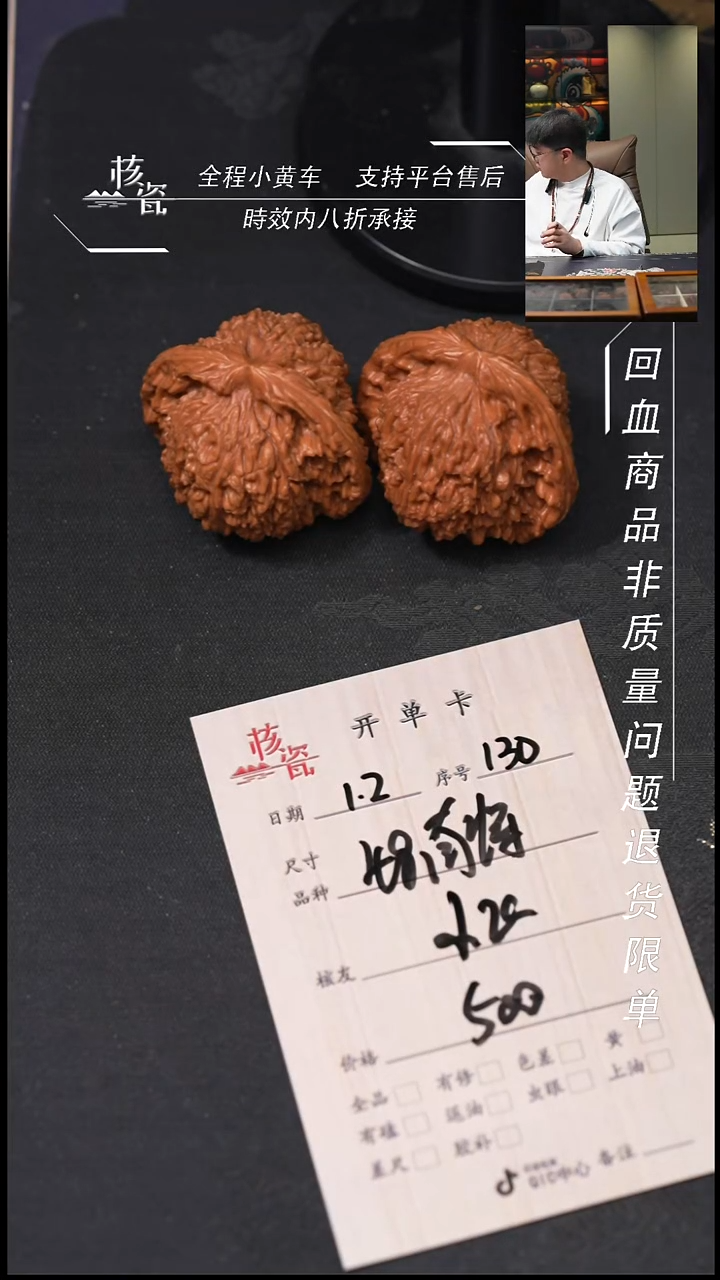 核瓷
全程小黄车 支持平台售后
時效内八折承接
回血商品非质量问题退货限单
核瓷
开单卡
日期 1.2 序号 130
尺寸
品种
核友
价格 500
全品 有修 色差 黄
有磕 返油 虫眼 上油
差尺 胶补
QIC中心 备注